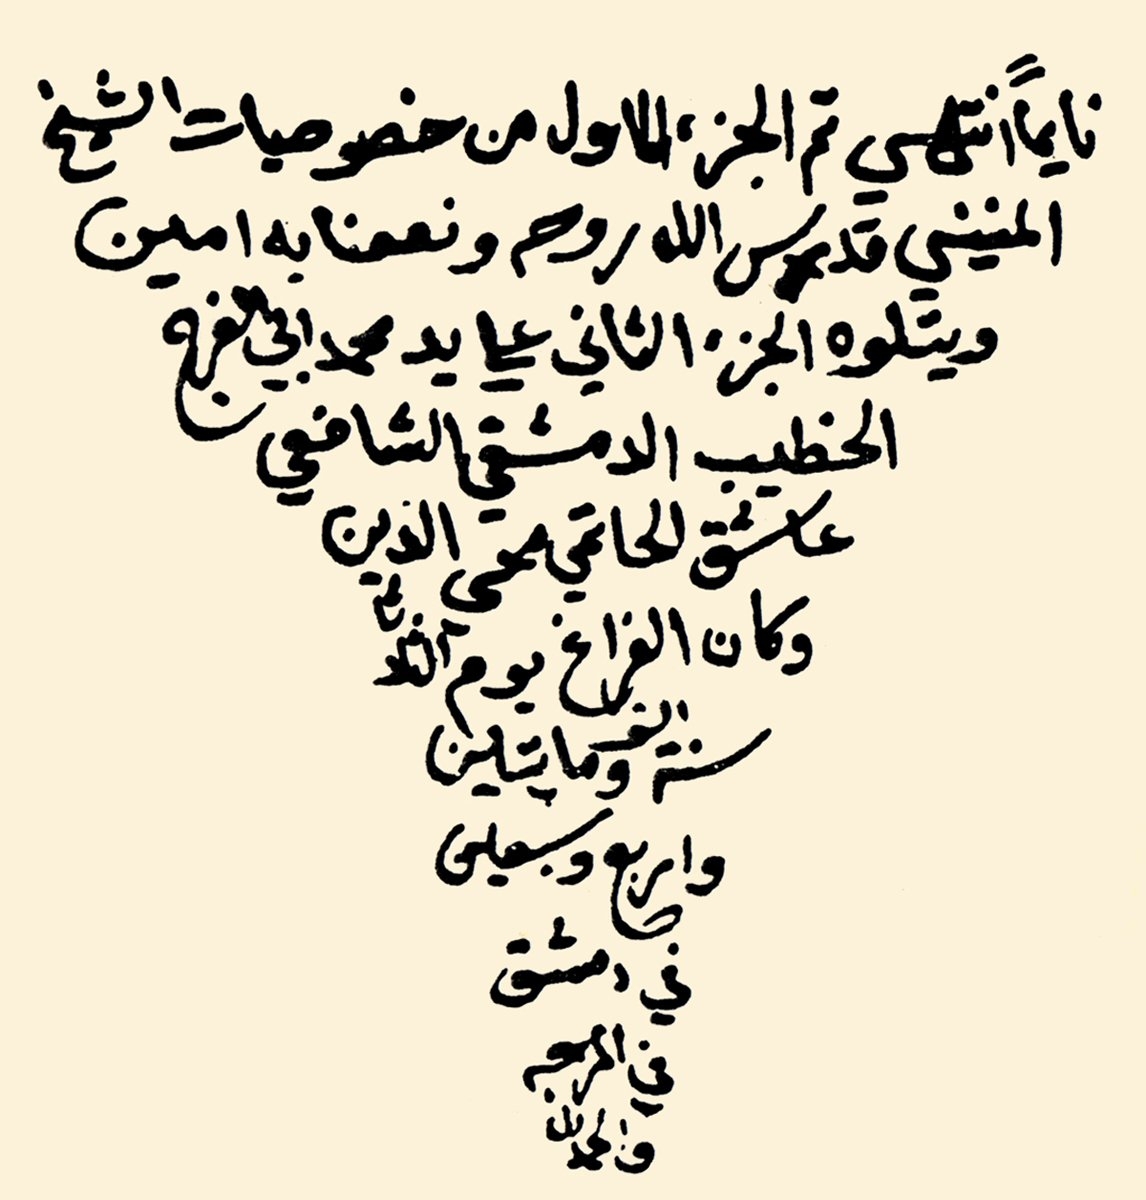 نايماً انتهي تم الجزء الاول من خصوصيات الشيخ
المنيني قدس الله روحه ونفعنا به امين
ويتلوه الجزء الثاني علي يد محمد ابي الفرج
الخطيب الدمشقي الشافعي
عاشق الحاتمي محي الدين
وكان الفراغ يوم الثلاثا
سنة الف ومايتين
واربع وسبعين
في دمشق
في المرجه
والحمد لله